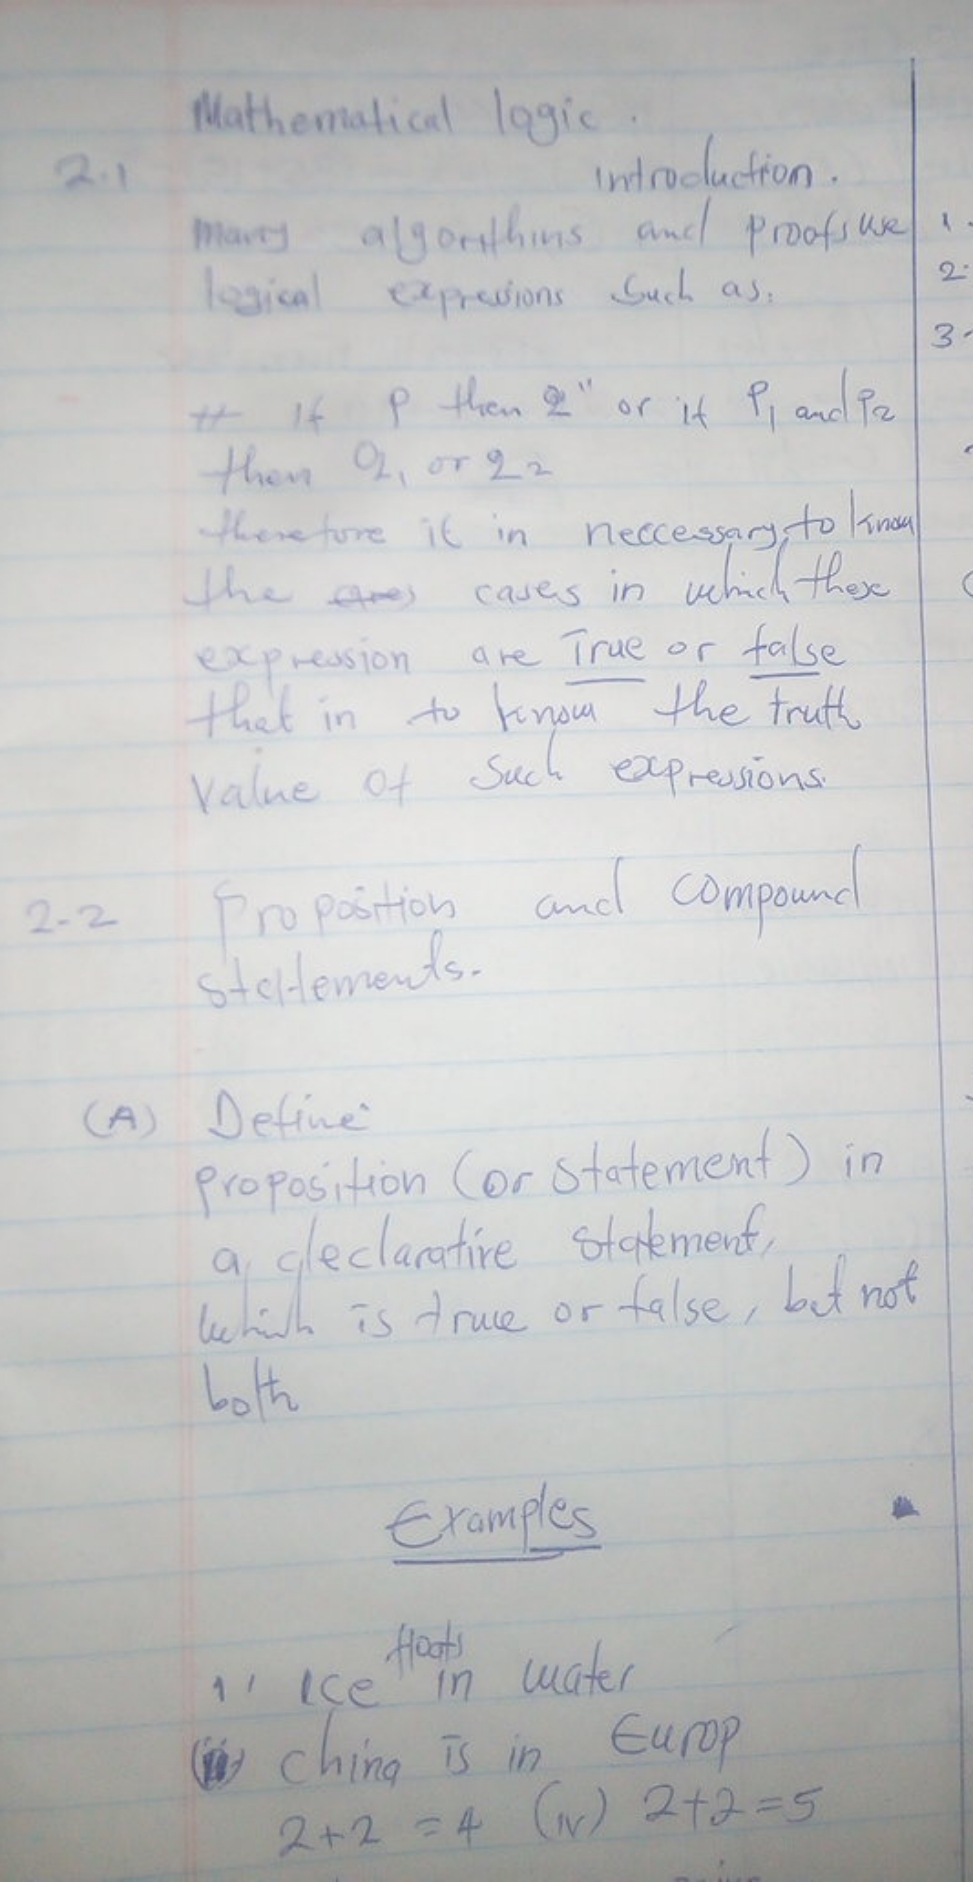 Mathematical logic.
2.1 introduction.
many algorithms and proofs use
logical expressions such as.
If P then Q" or if P1 and P2
then Q1 or Q2
therefore it in neccessary to know
the cases in which these
expression are True or false
that in to know the truth
value of such expressions.
2-2 Proposition and compound
statements.
(A) Define
proposition (or statement) in
a declarative statement,
which is true or false, but not
both
Examples
floats
1' Ice in water
(ii) china is in Europ
2+2 = 4 (iv) 2+2=5
1.
2.
3-